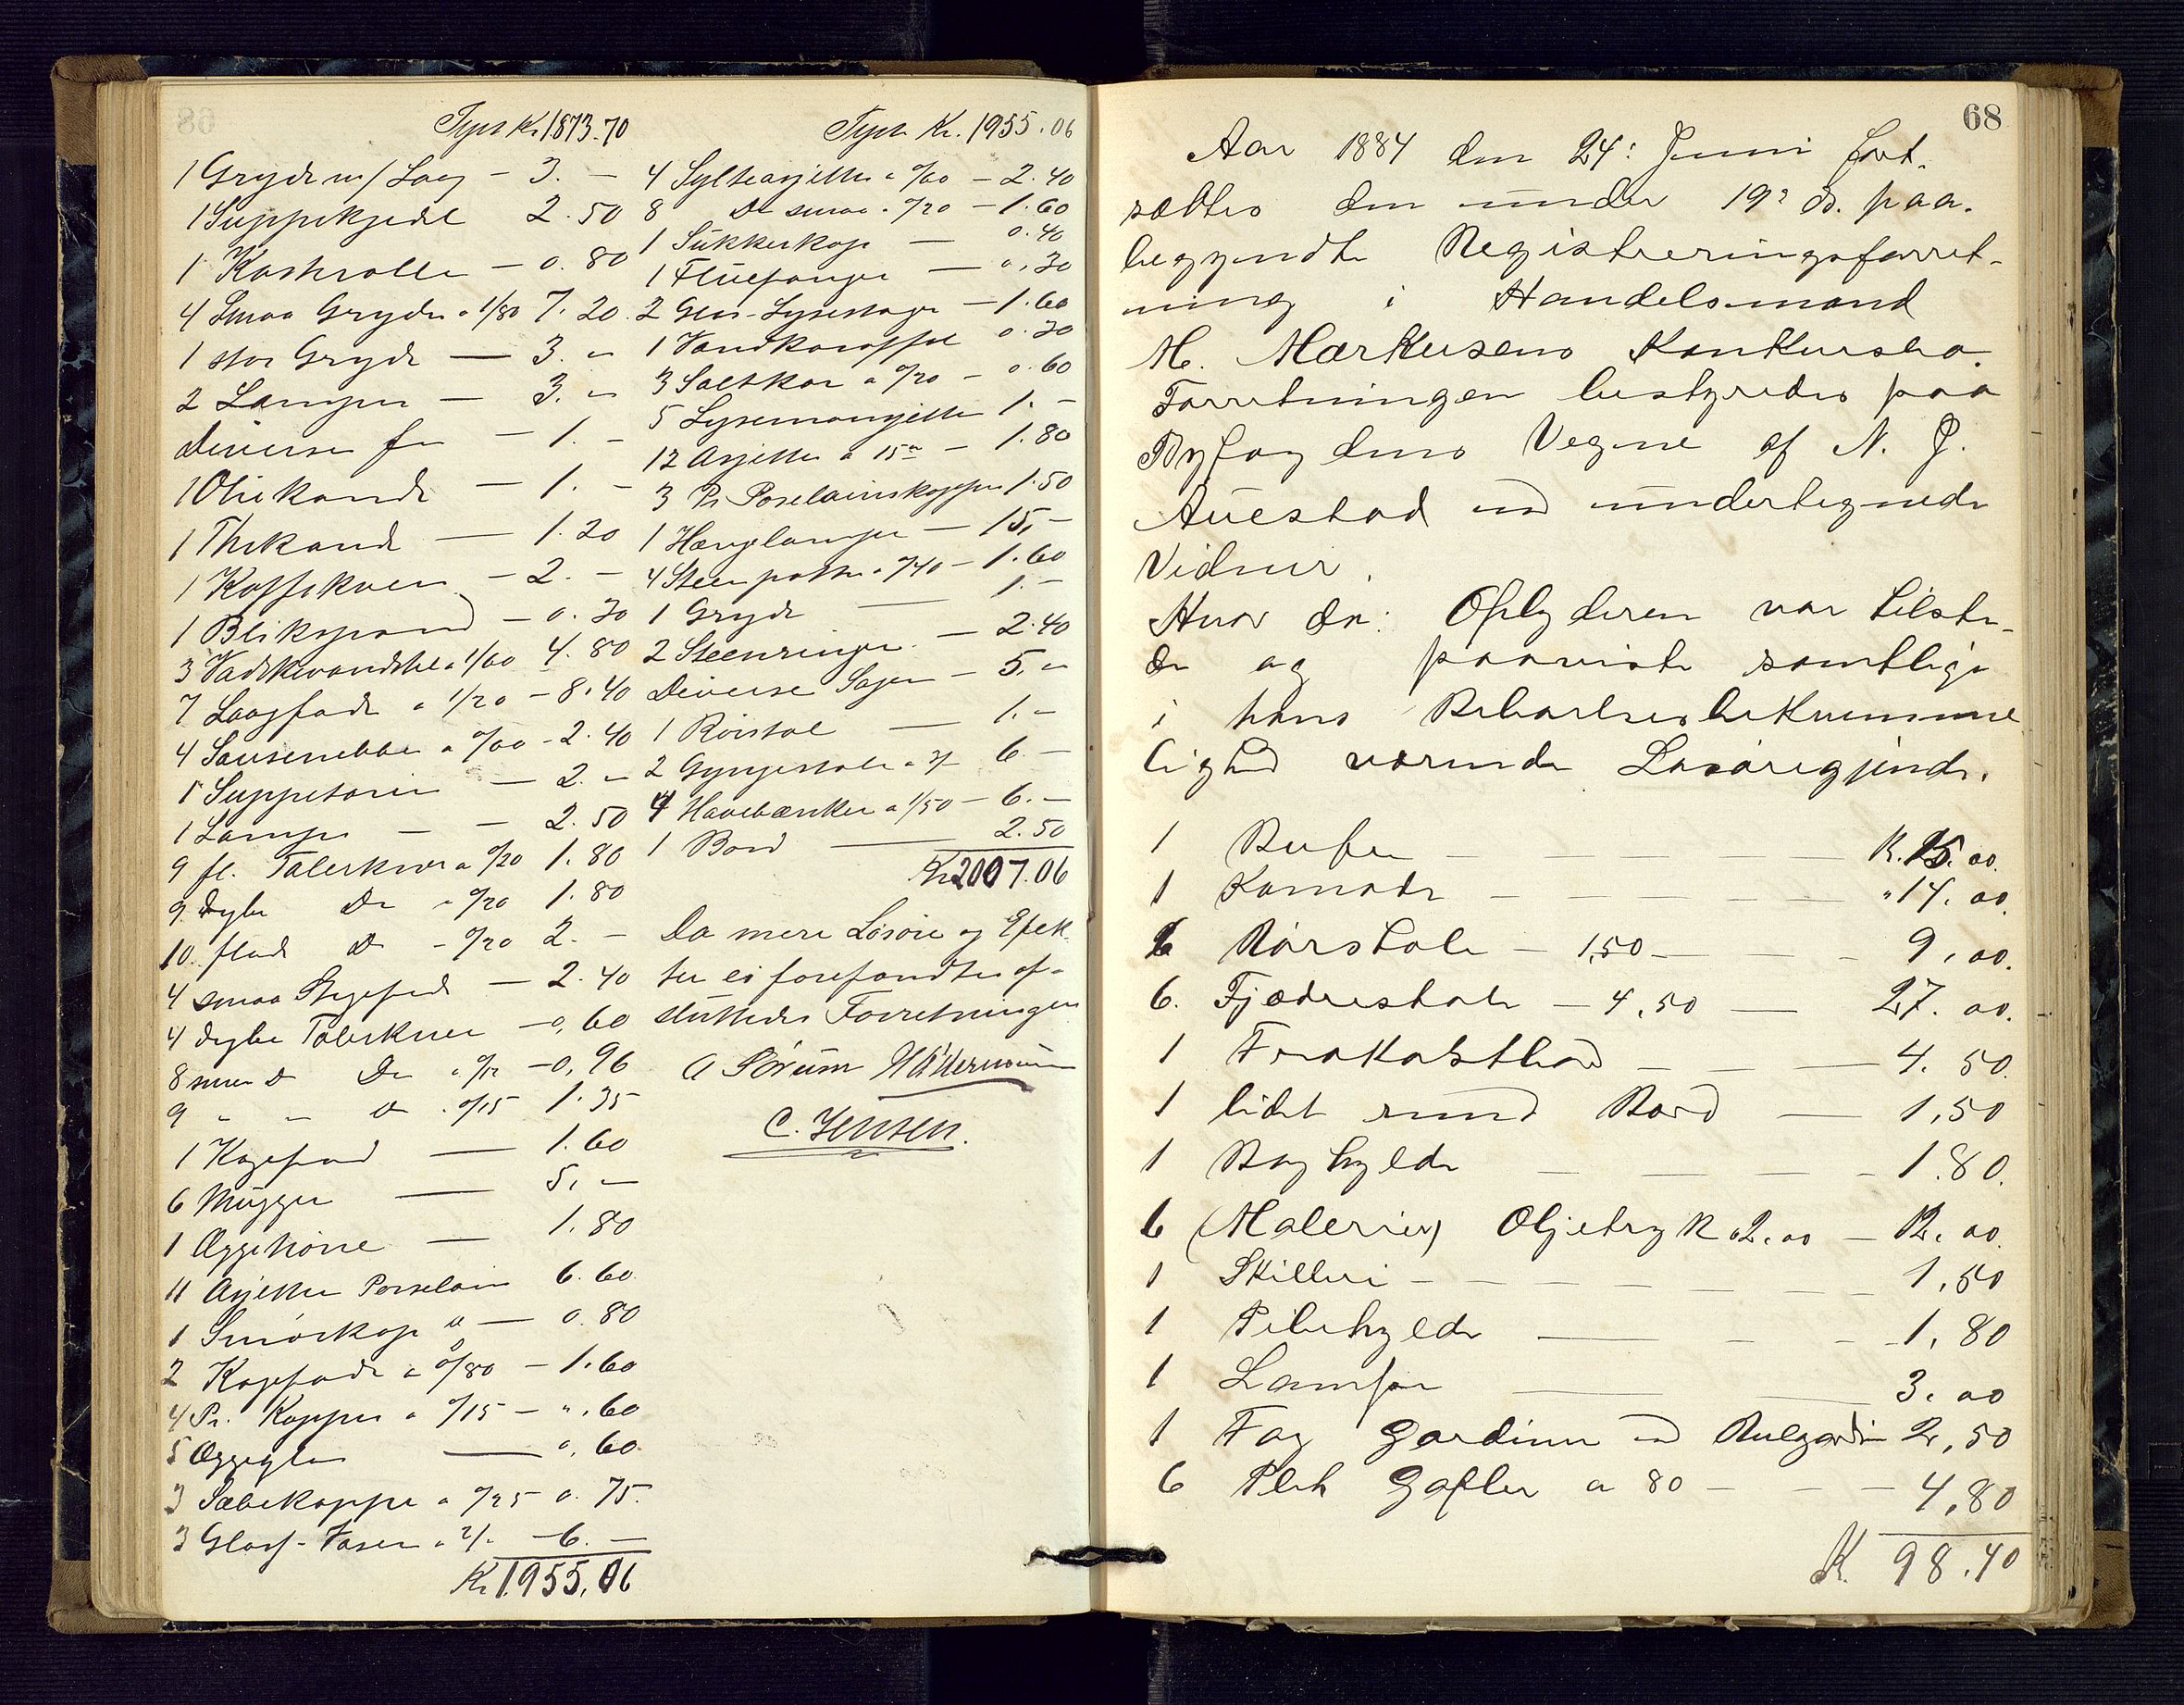 Tpst Kr. 1873.70
1 Gryde m/ Laag - 3. -
1 Suppekjedel 2.50
1 Kastrolle - 0.80
4 Smaa Gryder a 1/80 7.20
1 stor Gryde - 3. "
2 Lamper - 3. "
Diverse for - 1. -
1 Oliekande - 1. -
1 Thekande - 1.20
1 Kaffekvern - 2. -
1 Blikspand - 0.30
3 a 1/60 4.80
7 Laagfade a 1/20 - 8.40
4 Sausenebbe a 0/60 - 2.40
1 Suppeterin - 2. "
1 Lampe - - 2.50
9 fl. Talerkner a 0/20 1.80
9 dybe Do " 0/20 1.80
10 flade Do - 0/20 2. -
4 smaa Stegefad - 2.40
4 dybe Talerkner - 0,60
8 smaa Do a 0/12 - 0,96
9 " " Do . 0/15 1.35
1 Kagefad - 1.60
6 Mugger - 5, "
1 Æggehøne - 1.80
11 Asjetter Porselain 6.60
1 Smørkop " - 0.80
2 Kagefade a 0/80 - 1.60
4 Pr. Kopper a 0/15 - ".60
5 Æggeglas - ".60
3 Sæbekopper a 0/25 0.75.
3 Glass-Vaser a 2/- - 6. -
Kr 1955.06
Tpst Kr. 1955.06
4 Sylteasjetter a 0/60 - 2.40
8 Do smaa . 0/20 - 1.60
1 Sukkerkop - 0.40
1 Fluefanger - 0.30
2 Glas-Lysestager - 1.60
1 Vandkaraffel 0.30
3 Saltkar a 0/20 - 0.60
5 Lysemansjetter 1. -
12 Asjetter a 15 - 1.80
3 Pr Poselainskopper 1.50
1 Hængelampe - 15, -
4 Steenpotter . 0/40 - 1.60
1 Gryde - 1. -
2 Steenringer. - 2.40
Diverse Sager - 5. "
1 Rørstol - 1. -
2 Gyngestole a 3/- 6. -
4 Havebænker a 1/50 - 6. -
1 Bord - 2.50
Kr 2007.06
Da mere Løsøre og Efek
ter ei forefandtes af-
sluttedes Forretningen
A Sørum
C. Jensen.
68
Aar 1884 den 24: Juni fort.
sattes den under 19: ds. paa.
begyndte Registreringsforret-
ning i Handelsmand
M. Markusens Konkursbo.
Forretningen bestyredes paa
Byfogdens Vegne af N. J.
Auestad med undertegnede
Vidner.
Hvor da: Opbyderen var tilste-
de og paaviste samtlige
i hans Beboelsesbekvemme
lighed værende Løsøregjende.
1 Bufe - K. 15.00.
1 Komode - " 14.00.
6 Rørstole - 1,50 - 9,00.
6. Fjædrestole - 4,50 - 27.00.
1 Frokostbord - 4.50.
1 lidet rund Bord - 1,50
1 Boghylde - 1.80.
6 (Malerier) Oljetryk a 2.00 - 12.00.
1 Skilleri - 1,50
1 Pibehylde - 1,80
1 Lampe - 3.00
1 Fag Gardiner med Rulgardin 2,50
6 Plet Gafler a 80 - 4,80
K. 98.40